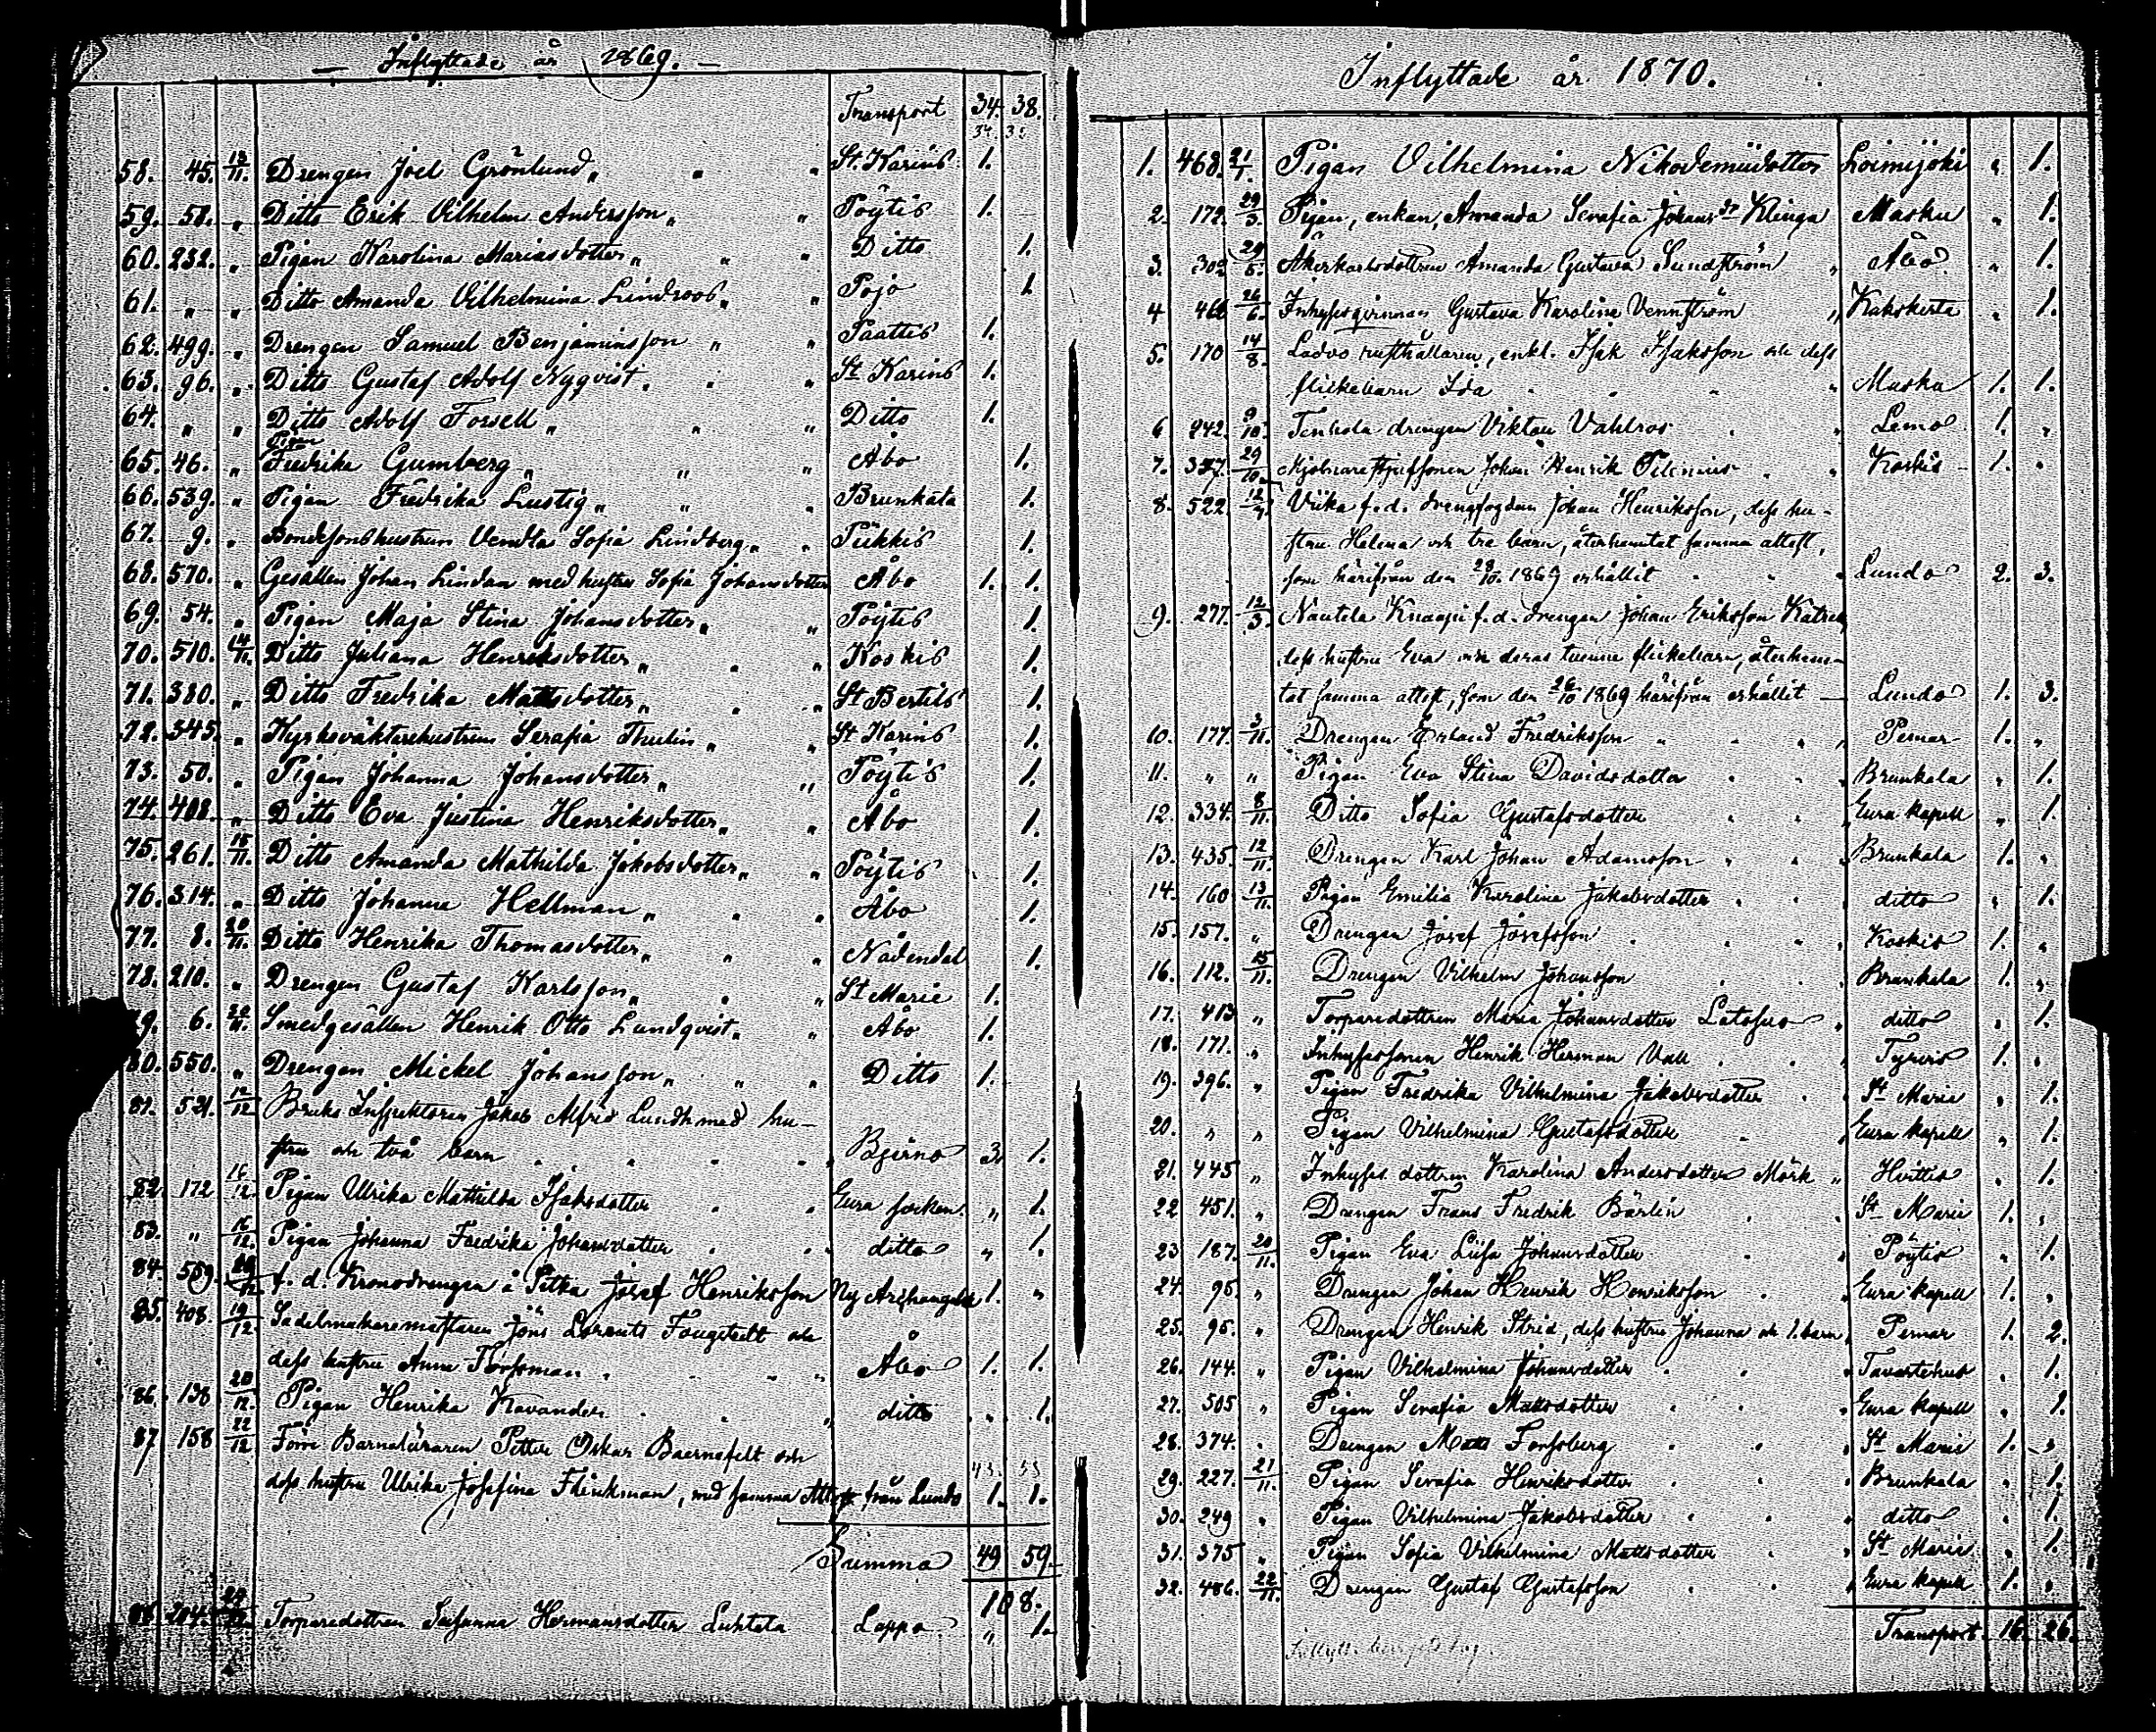 Inflyttade år 1869.
Transport 34. 38.
34. 38
58. 45. 13/11. Drengen Joel Grönlund „ „ „ St. Karins 1.
59. 58. „ Ditto Erik Vilhelm Andersson „ „ Pöytis 1.
60. 232. „ Pigan Karolina Mariasdotter „ „ „ Ditto 1.
61. „ „ Ditto Amanda Vilhelmina Lindroos „ „ Pojo 1
62. 499. „ Drengen Samuel Benjaminsson „ „ Paattis 1.
63. 96. „ Ditto Gustaf Adolf Nyqvist. „ „ St Karins 1.
64. „ „ Ditto Adolf Forsell „ „ „ Ditto 1.
Pigan
65. 46. „ Fredrika Gumberg „ „ „ Åbo 1.
66. 539. „ Pigan Fredrika Lustig „ „ „ Brunkala 1.
67. 9. „ Bondesonshustrun Vendla Sofia Lindberg „ „ Piikkis 1.
68. 570. „ Gesällen Johan Lindan med hustru Sofia Johansdotter Åbo 1. 1.
69. 54. „ Pigan Maja Stina Johansdotter „ „ Pöytis 1.
70. 510. 14/11. Ditto Juliana Henriksdotter „ „ „ Koskis 1.
71. 380. „ Ditto Fredrika Mattsdotter „ „ „ St Bertils 1.
72. 345. „ Kyrkoväktarehustrun Serafia Thulin „ „ St Karins 1.
73. 50. „ Pigan Johanna Johansdotter „ „ Pöytis 1.
74. 408. „ Ditto Eva Justina Henriksdotter „ „ Åbo 1.
75. 261. 15/11. Ditto Amanda Mathilda Jakobsdotter „ „ Pöytis 1.
76. 314. „ Ditto Johanna Hellman „ „ „ Åbo 1.
77. 8. 20/11. Ditto Henrika Thomasdotter „ „ „ Nådendal 1.
78. 210. „ Drengen Gustaf Karlsson „ „ „ St Marie 1.
79. 6. 30/11. Smedgesällen Henrik Otto Lundqvist „ „ Åbo 1.
80. 550. „ Drengen Mickel Johansson „ „ „ Ditto 1.
81. 521. 12/12 Bruks Inspektoren Jakob Alfrid Lundh med hu-
stru och två barn „ „ „ „ Bjerno 3. 1.
82. 172 16/12. Pigan Ulrika Mathilda Isaksdotter „ „ Eura socken „ 1.
83. „ 16/12. Pigan Johanna Fredrika Johansdotter „ „ ditto „ 1.
84. 559. 20/12 f. d. Kronodrengen å Sitka Josef Henriksson Ny Archangelsk 1. „
85. 408. 19/12. Sadelmakaremästaren Jöns Lorents Fougstedt och
dess hustru Anna Forssman „ „ „ Åbo 1. 1.
86. 138. 20/12. Pigan Henrika Kavander „ „ „ ditto „ 1.
87 158 22/12. Förre Barnaläraren Petter Oskar Baernefelt och
43. 53
dess hustru Ulrika Josefina Flinkman, med samma Attest från Lundo 1. 1.
Summa 49 59.
108.
88. 204. Torparedottren Susanna Hermansdotter Luhtala Lappo „ 1.
Inflyttade år 1870.
1. 468. 21/1. Pigan Vilhelmina Nikodemidotter Loimijoki „ 1.
2. 172. 29/3. Pigan, enkan, Amanda Serafia Johansdr Klinga Masku „ 1.
3. 302. 29/5. Åkerkarlsdottren Amanda Gustava Sundström „ Åbo „ 1.
4 466 26/6. Inhysesqvinnan Gustava Karolina Vennström „ Kakskerta „ 1.
5. 170 14/8. Ladvo rusthållaren, enkl. Isak Isaksson och dess
flickebarn Ida „ „ „ „ Masku 1. 1.
6 242. 9/10. Tenhola drengen Viktor Vahlros „ „ Lemo 1. „
7. 357. 29/10. Mjölnarestjufsonen Johan Henrik Silenius „ „ Koskis 1. „
8. 522. 12/4. Viika f. d. drengfogden Johan Henriksson, dess hu-
stru Helena och tre barn, återhemtat samma attest,
som härifrån den 28/10 1869 erhållit „ „ „ Lundo 2. 3.
9. 277. 12/3. Nautela Knaapi f. d. drengen Johan Eriksson Katrea
dess hustru Eva och deras tvenne flickebarn, återhem-
tat samma attest, som den 26/10 1869 härifrån erhållit — Lundo 1. 3.
10. 177. 3/11. Drengen Erland Fredriksson „ „ „ Pemar 1. „
11. „ „ Pigan Eva Stina Davidsdotter „ „ Brunkala „ 1.
12. 334. 8/11. Ditto Sofia Gustafsdotter „ „ Eura kapell „ 1.
13. 435. 12/11. Drengen Karl Johan Adamsson „ „ Brunkala 1. „
14. 160 13/11. Pigan Emilia Karolina Jakobsdotter „ „ ditto „ 1.
15. 157. „ Drengen Josef Josefsson „ „ „ Koskis 1. „
16. 112. 15/11. Drengen Vilhelm Johansson „ „ Brunkala 1. „
17. 413 „ Torparedottren Maria Johansdotter Latosuo „ ditto „ 1.
18. 171. „ Inhysessonen Henrik Herman Vall „ „ Tyrvis 1. „
19. 396. „ Pigan Fredrika Vilhelmina Jakobsdotter „ „ St Marie „ 1.
20. „ „ Pigan Vilhelmina Gustafsdotter „ „ Eura kapell „ 1.
21. 445 „ Inhyses dottren Karolina Andersdotter Mörk „ Hvittis „ 1.
22 451. „ Drengen Frans Fredrik Bärlin „ „ St Marie 1. „
23 187. 20/11. Pigan Eva Liisa Johansdotter „ „ Pöytis „ 1.
24. 95. „ Drengen Johan Henrik Henriksson „ „ Eura kapell 1. „
25. 95. „ Drengen Henrik Strid, dess hustru Johanna och 1. barn „ Pemar 1. 2.
26. 144. „ Pigan Vilhelmina Johansdotter „ „ „ Tavastehus „ 1.
27. 505 „ Pigan Serafia Mattsdotter „ „ „ Eura kapell „ 1.
28. 374. „ Drengen Matts Forssberg „ „ „ St Marie 1. „
29. 227. 21/11. Pigan Serafia Henriksdotter „ „ Brunkala „ 1.
30. 249 „ Pigan Vilhelmina Jakobsdotter „ „ „ ditto „ 1.
31. 375 „ Pigan Sofia Vilhelmina Mattsdotter „ „ St Marie „ 1.
32. 486. 22/11. Drengen Gustaf Gustafsson „ „ „ Eura kapell 1. „
Transport. 16. 26.